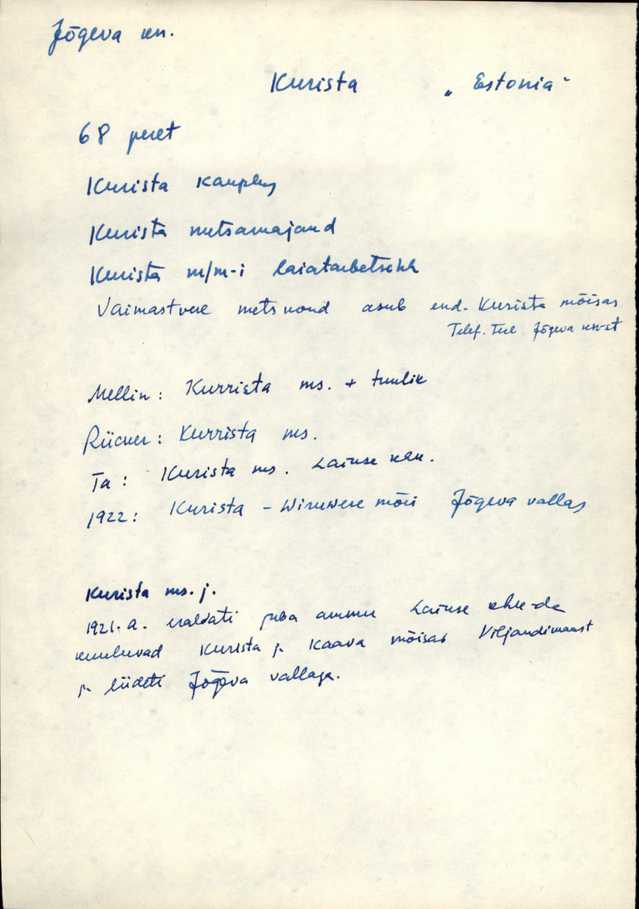 Jõgeva kn.
Kurista „Estonia"
68 peret
Kurista kauplus
Kurista metsamajand
Kurista m/m-i laiatarbetsehh
Vaimastvere metskond asub end. Kurista mõisas
Telef. Teel Jõgeva kn-st
Mellin: Kurrista ms. + tuulik
Rücker: Kurrista ms.
Ta: Kurista ms. Laiuse khk.
1922: Kurista – Wiruwere mõis Jõgeva vallas
Kurista ms. j.
1921. a. eraldati juba ammu Laiuse khk-da
kuuluvad Kurista ja Kaava mõisas Viljandimaast
ja liideti Jõgeva vallaga.